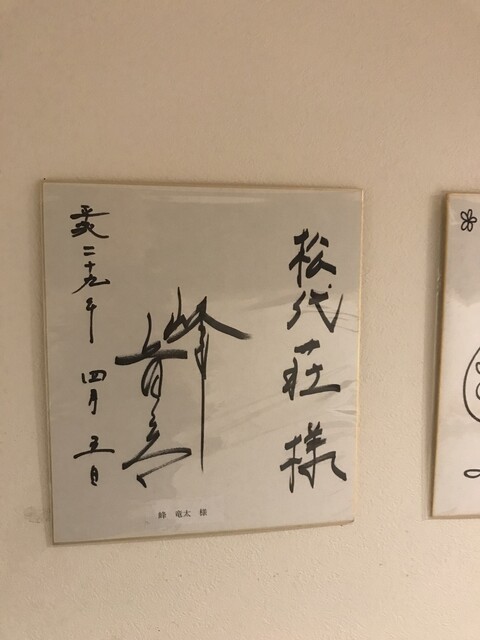 松代荘様
峰竜太
平成二十九年 四月 五日
峰 竜太 様